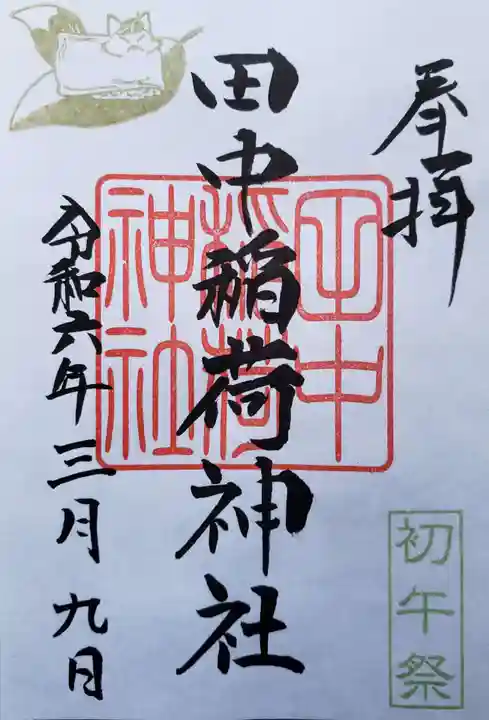 奉拝
初午祭
田中
稲荷
神社
田中稲荷神社
令和六年三月九日